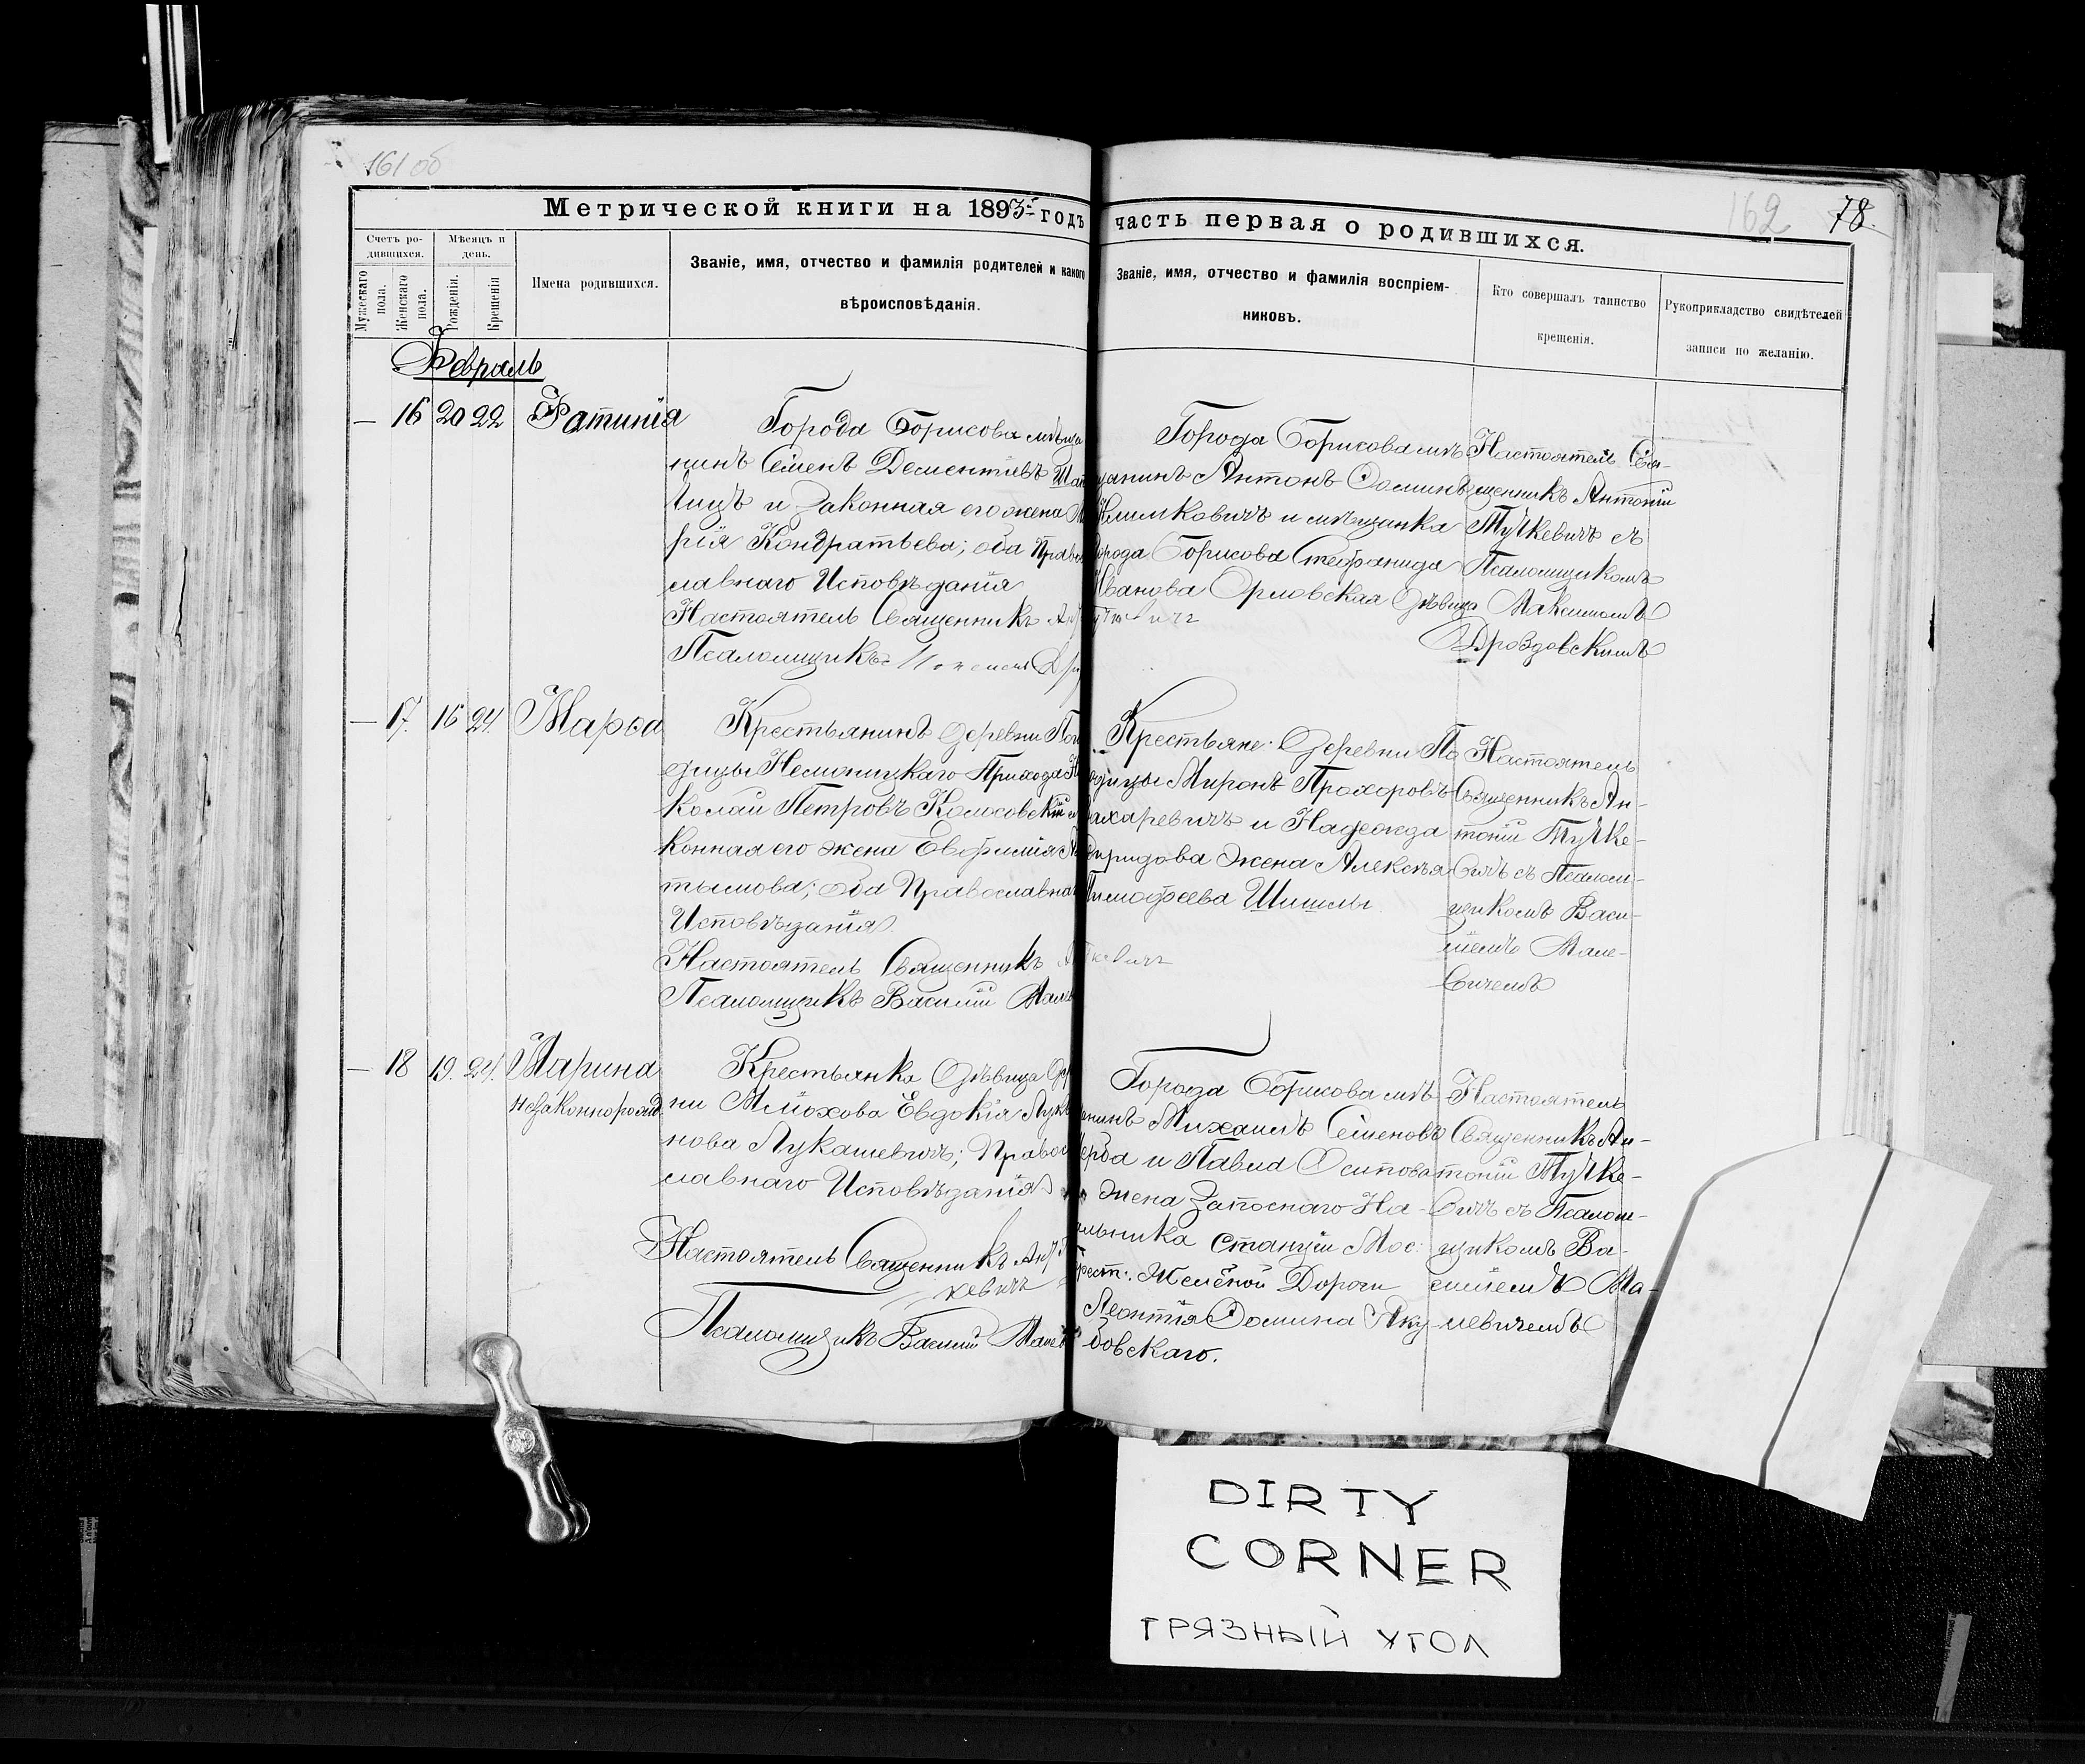 161 об
162
78.
Метрической книги на 1893 годъ часть первая о родившихся.
Счетъ родившихся.
Мужескаго пола.
Женскаго пола.
Мѣсяцъ и день.
Рожденія.
Крещенія
Имена родившихся.
Званіе, имя, отчество и фамилія родителей и какого
вѣроисповѣданія.
Званіе, имя, отчество и фамилія воспріем-
никовъ.
Кто совершалъ таинство
крещенія.
Рукоприкладство свидѣтелей
записи по желанію.
Февраль
— 16 20 22 Фотинія
Города Борисова мѣща
нинъ Семенъ Дементіевъ
и законная его жена
рія Кондратьева; оба Правос
лавнаго Исповѣданія
Настоятель Священникъ
Псаломщикъ
Города Борисова мѣ
щанинъ Антонъ Осиповъ
Климковичъ и мѣщанка
города Борисова Стефанида
Иванова Орловская дѣвица
Настоятель Свя-
щенникъ Антоній
Тучкевичъ съ
Псаломщикомъ
Максимомъ
Дроздовскимъ
— 17. 16 24. Марѳа
Крестьянинъ деревни
Немоницкаго Прихода Ни
колай Петровъ Колосовскій
конная его жена Евфимія
оба Православнаго
Исповѣданія.
Настоятель Священникъ
Псаломщикъ Василій Мале
Крестьяне деревни
Миронъ Прохоровъ
Захаревичъ и Надежда
Спиридова жена Алексѣя
Тимофеева Шишлы
Настоятель
Священникъ Ан-
тоній Тучке-
вичъ съ Псалом-
щикомъ Васи-
ліемъ Мале-
вичемъ
— 18 19. 24. Марина
незаконнорожд.
Крестьянка дѣвица
Евдокія
нова Лукашевичъ; Правос
лавнаго Исповѣданія
Настоятель Священникъ
кевичъ
Псаломщикъ Василій Малев
Города Борисова мѣ
нинъ Михаилъ Семеновъ
и Павла Осипова
жена Запаснаго На-
альника станціи Мос:
Брест: Желѣзной Дороги
Леонтія Яку-
бовскаго.
Настоятель
Священникъ Ан-
тоній Тучке-
вичъ съ Псалом-
щикомъ Ва-
силіемъ Ма-
левичемъ
DIRTY
CORNER
ГРЯЗНЫЙ УГОЛ